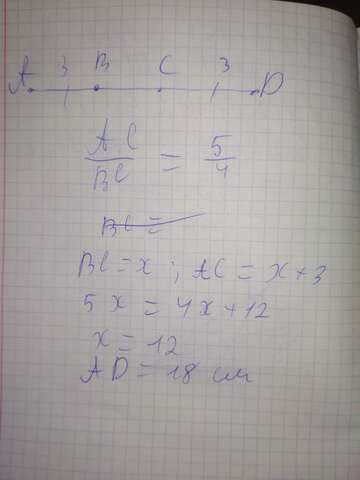 A 3 B C 3 D
AC/BC = 5/4
BC =
BC = x ; AC = x + 3
5x = 4x + 12
x = 12
AD = 18 см